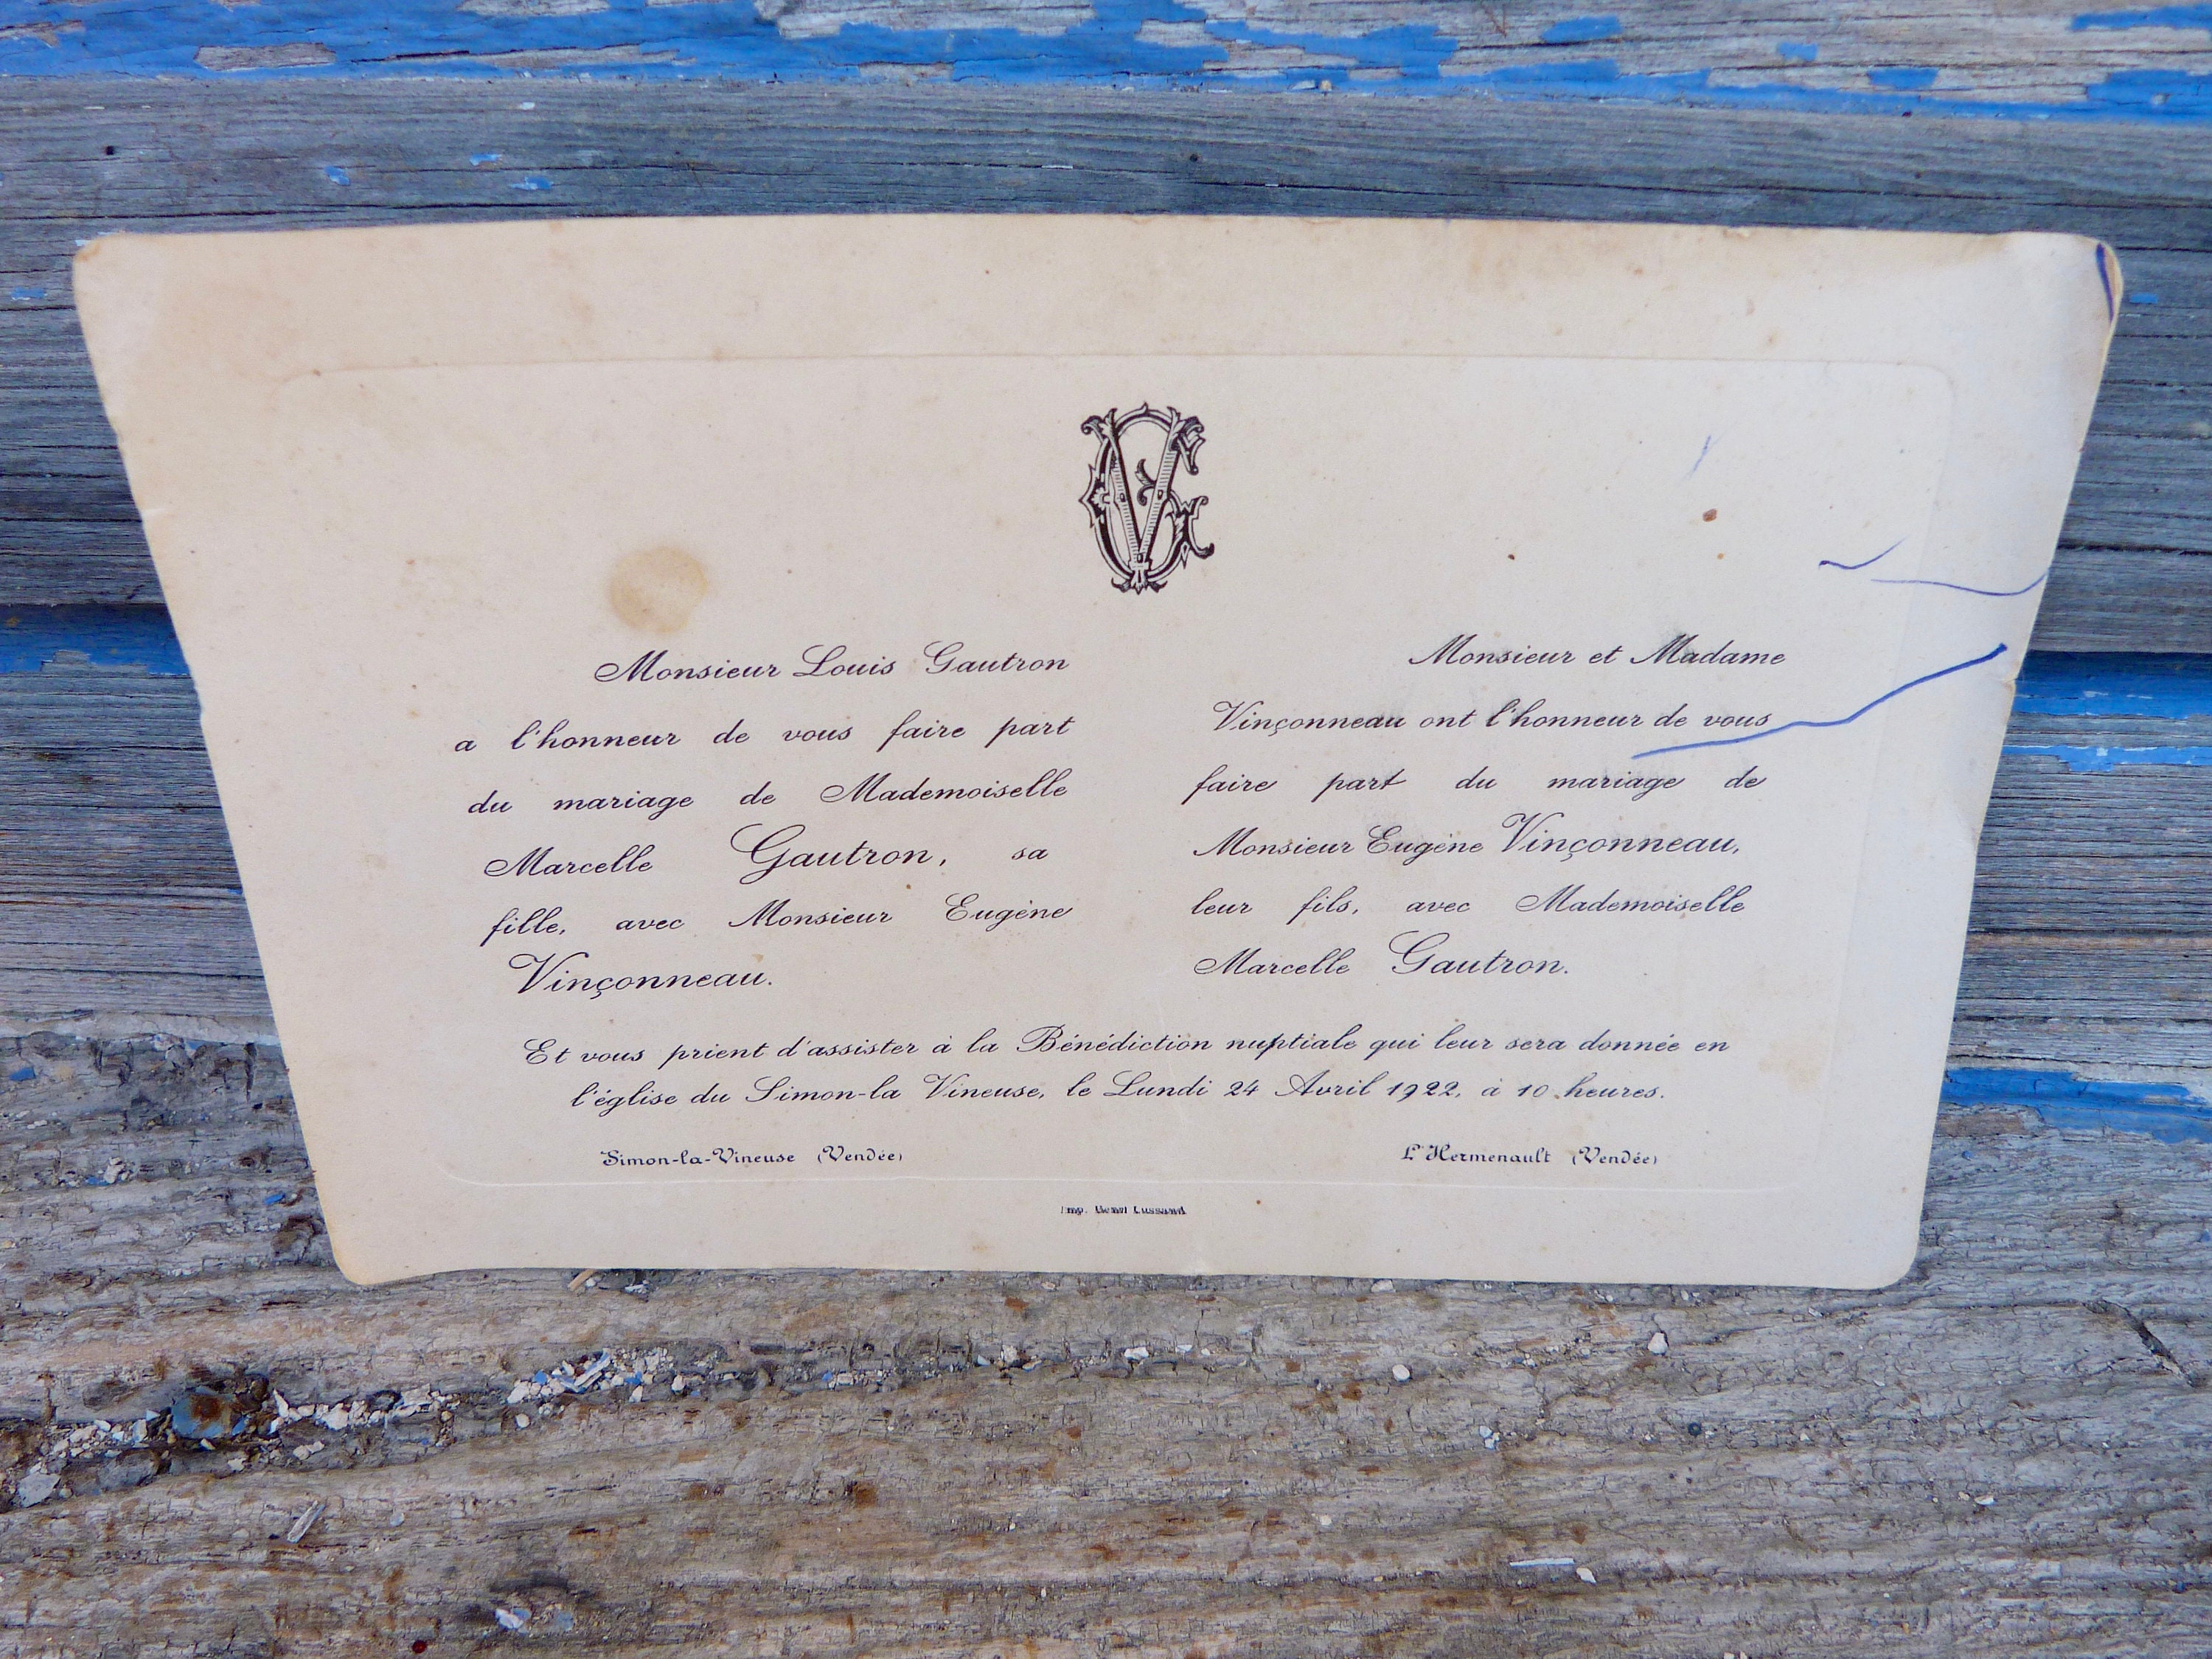 GV
Monsieur Louis Gautron
a l'honneur de vous faire part
du mariage de Mademoiselle
Marcelle Gautron, sa
fille, avec Monsieur Eugène
Vinçonneau.
Monsieur et Madame
Vinçonneau ont l'honneur de vous
faire part du mariage de
Monsieur Eugène Vinçonneau,
leur fils, avec Mademoiselle
Marcelle Gautron.
Et vous prient d'assister à la Bénédiction nuptiale qui leur sera donnée en
l'église du Simon-la Vineuse, le Lundi 24 Avril 1922, à 10 heures.
Simon-la-Vineuse (Vendée)
L'Hermenault (Vendée)
Imp. Henri Lussaud